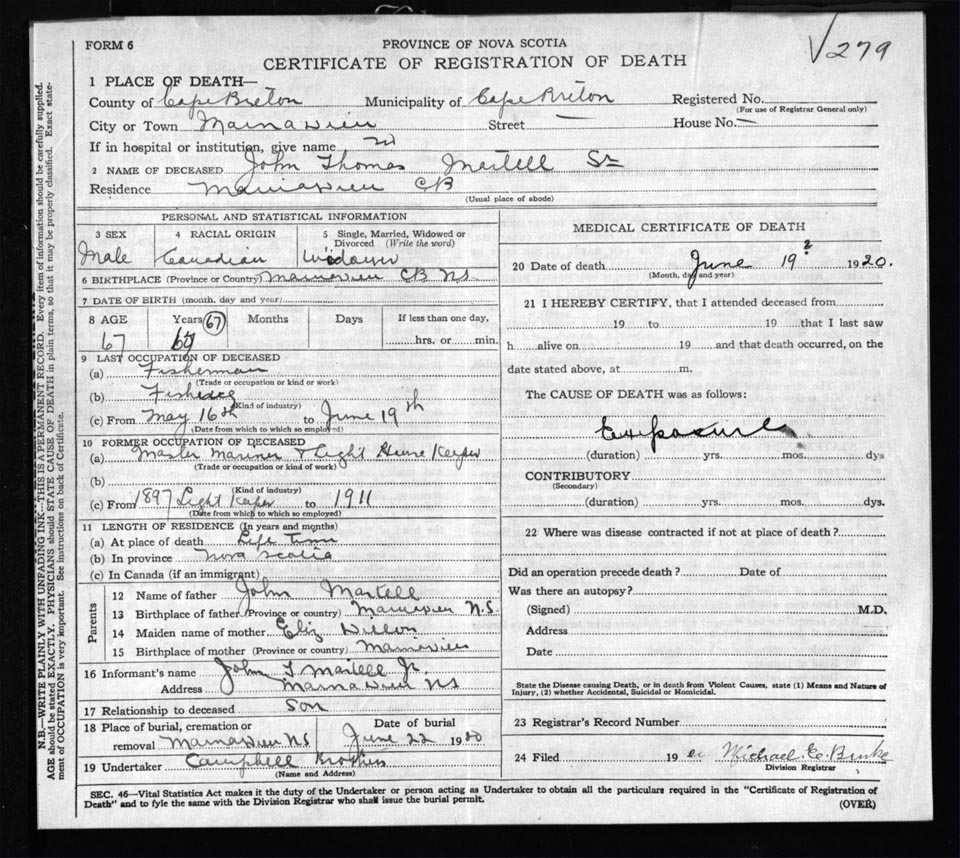 √279
FORM 6
PROVINCE OF NOVA SCOTIA
CERTIFICATE OF REGISTRATION OF DEATH
1 PLACE OF DEATH—
County of Cape Breton Municipality of Cape Breton Registered No.
(For use of Registrar General only)
City or Town Mainadieu Street — House No. —
If in hospital or institution, give name
2 NAME OF DECEASED John Thomas Martell Sr
Residence Mainadieu CB
(Usual place of abode)
PERSONAL AND STATISTICAL INFORMATION
3 SEX 4 RACIAL ORIGIN 5 Single, Married, Widowed or Divorced (Write the word)
Male Canadian Widower
6 BIRTHPLACE (Province or Country) Mainadieu CB NS
7 DATE OF BIRTH (month, day and year)
8 AGE Years 67 Months Days If less than one day,
67 67 hrs. or min.
9 LAST OCCUPATION OF DECEASED
(a) Fisherman
(Trade or occupation or kind or work)
(b)
(Kind of industry)
(c) From May 16th to June 19th
(Date from which to which so employed)
10 FORMER OCCUPATION OF DECEASED
(a) Master Mariner & Light House Keeper
(Trade or occupation or kind of work)
(b)
(Kind of industry)
(c) From 1897 Light Keeper to 1911
(Date from which to which so employed)
11 LENGTH OF RESIDENCE (In years and months)
(a) At place of death Life Time
(b) In province Nova Scotia
(c) In Canada (if an immigrant)
Parents
12 Name of father John Martell
13 Birthplace of father (Province or country) Mainadieu N.S.
14 Maiden name of mother Eliz
15 Birthplace of mother (Province or country) Mainadieu
16 Informant's name John T Martell Jr
Address Mainadieu NS
17 Relationship to deceased Son
18 Place of burial, cremation or Date of burial
removal Mainadieu NS June 22 1920
19 Undertaker Campbell Brothers
(Name and Address)
MEDICAL CERTIFICATE OF DEATH
20 Date of death June 19? 1920.
(Month, day and year)
21 I HEREBY CERTIFY, that I attended deceased from
19 to 19 that I last saw
h alive on 19 and that death occurred, on the
date stated above, at m.
The CAUSE OF DEATH was as follows:
Exposure
(duration) yrs. mos. dys
CONTRIBUTORY
(Secondary)
(duration) yrs. mos. dys.
22 Where was disease contracted if not at place of death?
Did an operation precede death? Date of
Was there an autopsy?
(Signed) M.D.
Address
Date
State the Disease causing Death, or in death from Violent Causes, state (1) Means and Nature of
Injury, (2) whether Accidental, Suicidal or Homicidal.
23 Registrar's Record Number
24 Filed 19 Michael E. Burke
Division Registrar
SEC. 46—Vital Statistics Act makes it the duty of the Undertaker or person acting as Undertaker to obtain all the particulars required in the "Certificate of Registration of
Death" and to fyle the same with the Division Registrar who shall issue the burial permit.
(OVER)
N.B.—WRITE PLAINLY WITH UNFADING INK—THIS IS A PERMANENT RECORD. Every item of information should be carefully supplied.
AGE should be stated EXACTLY. PHYSICIANS should STATE CAUSE OF DEATH in plain terms, so that it may be properly classified. Exact state-
ment of OCCUPATION is very important. See instructions on back of Certificate.